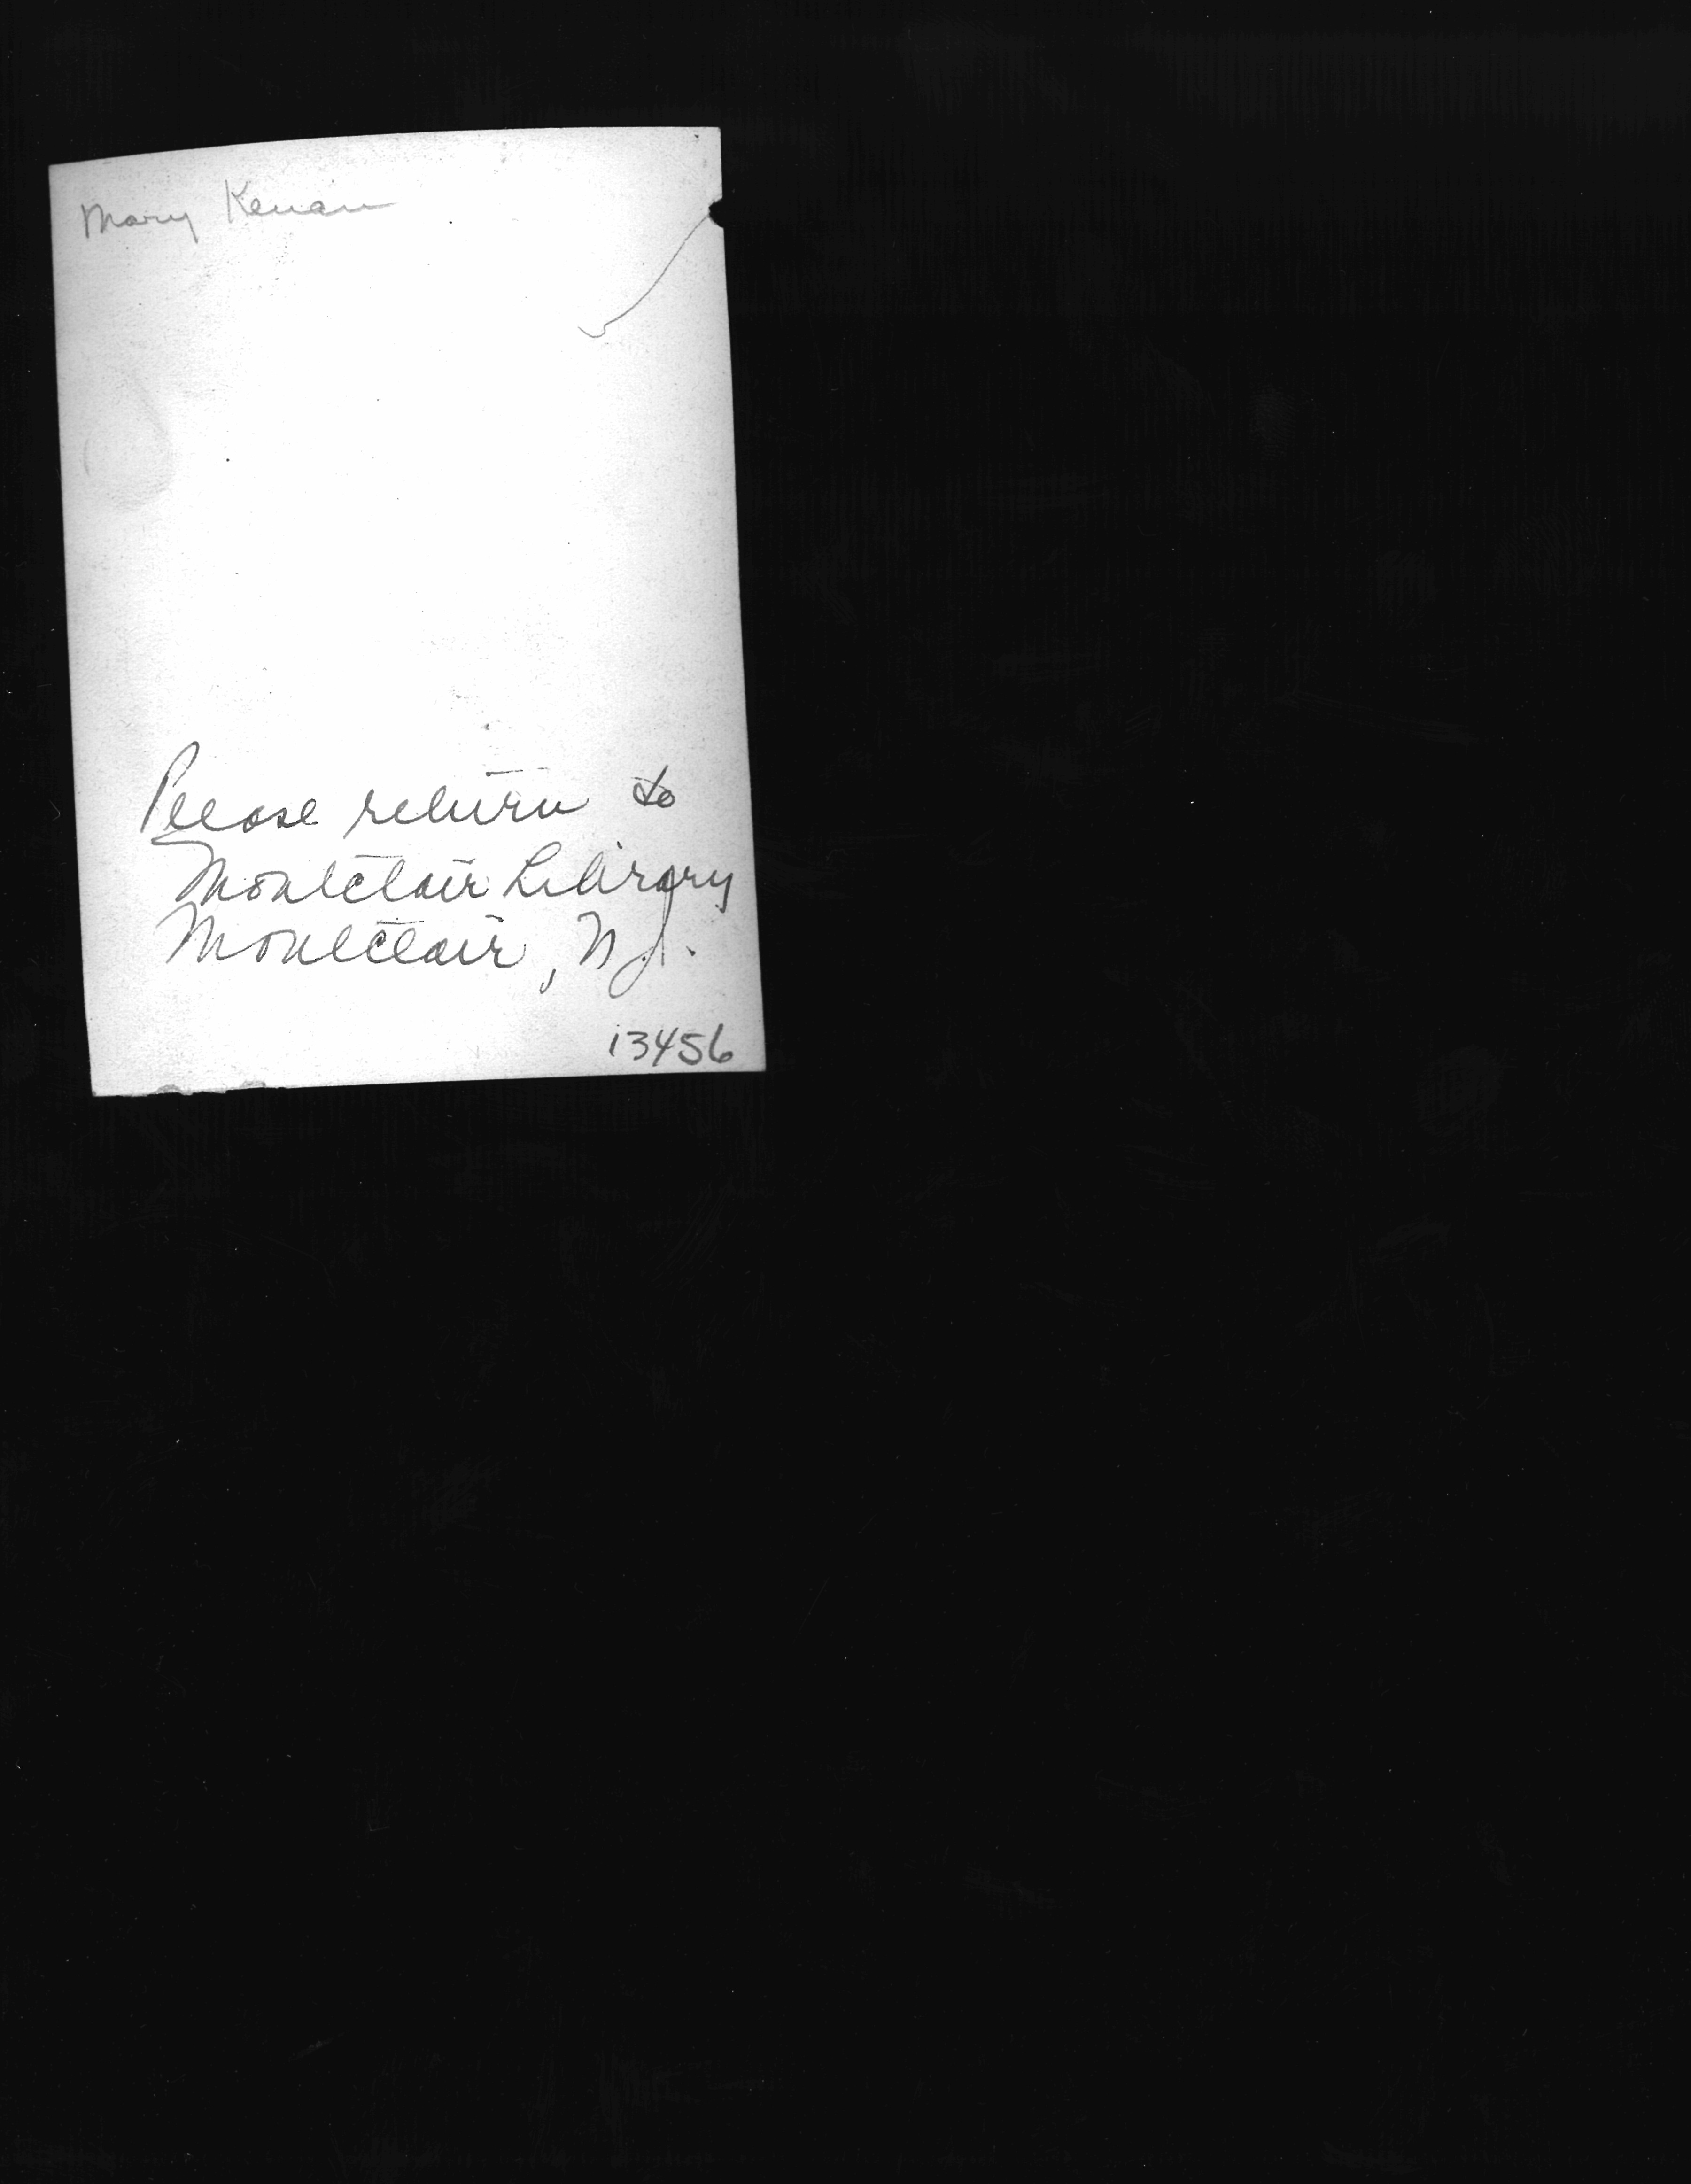 Mary Kenan
Please return to
Montclair Library
Montclair, N.J.
13456